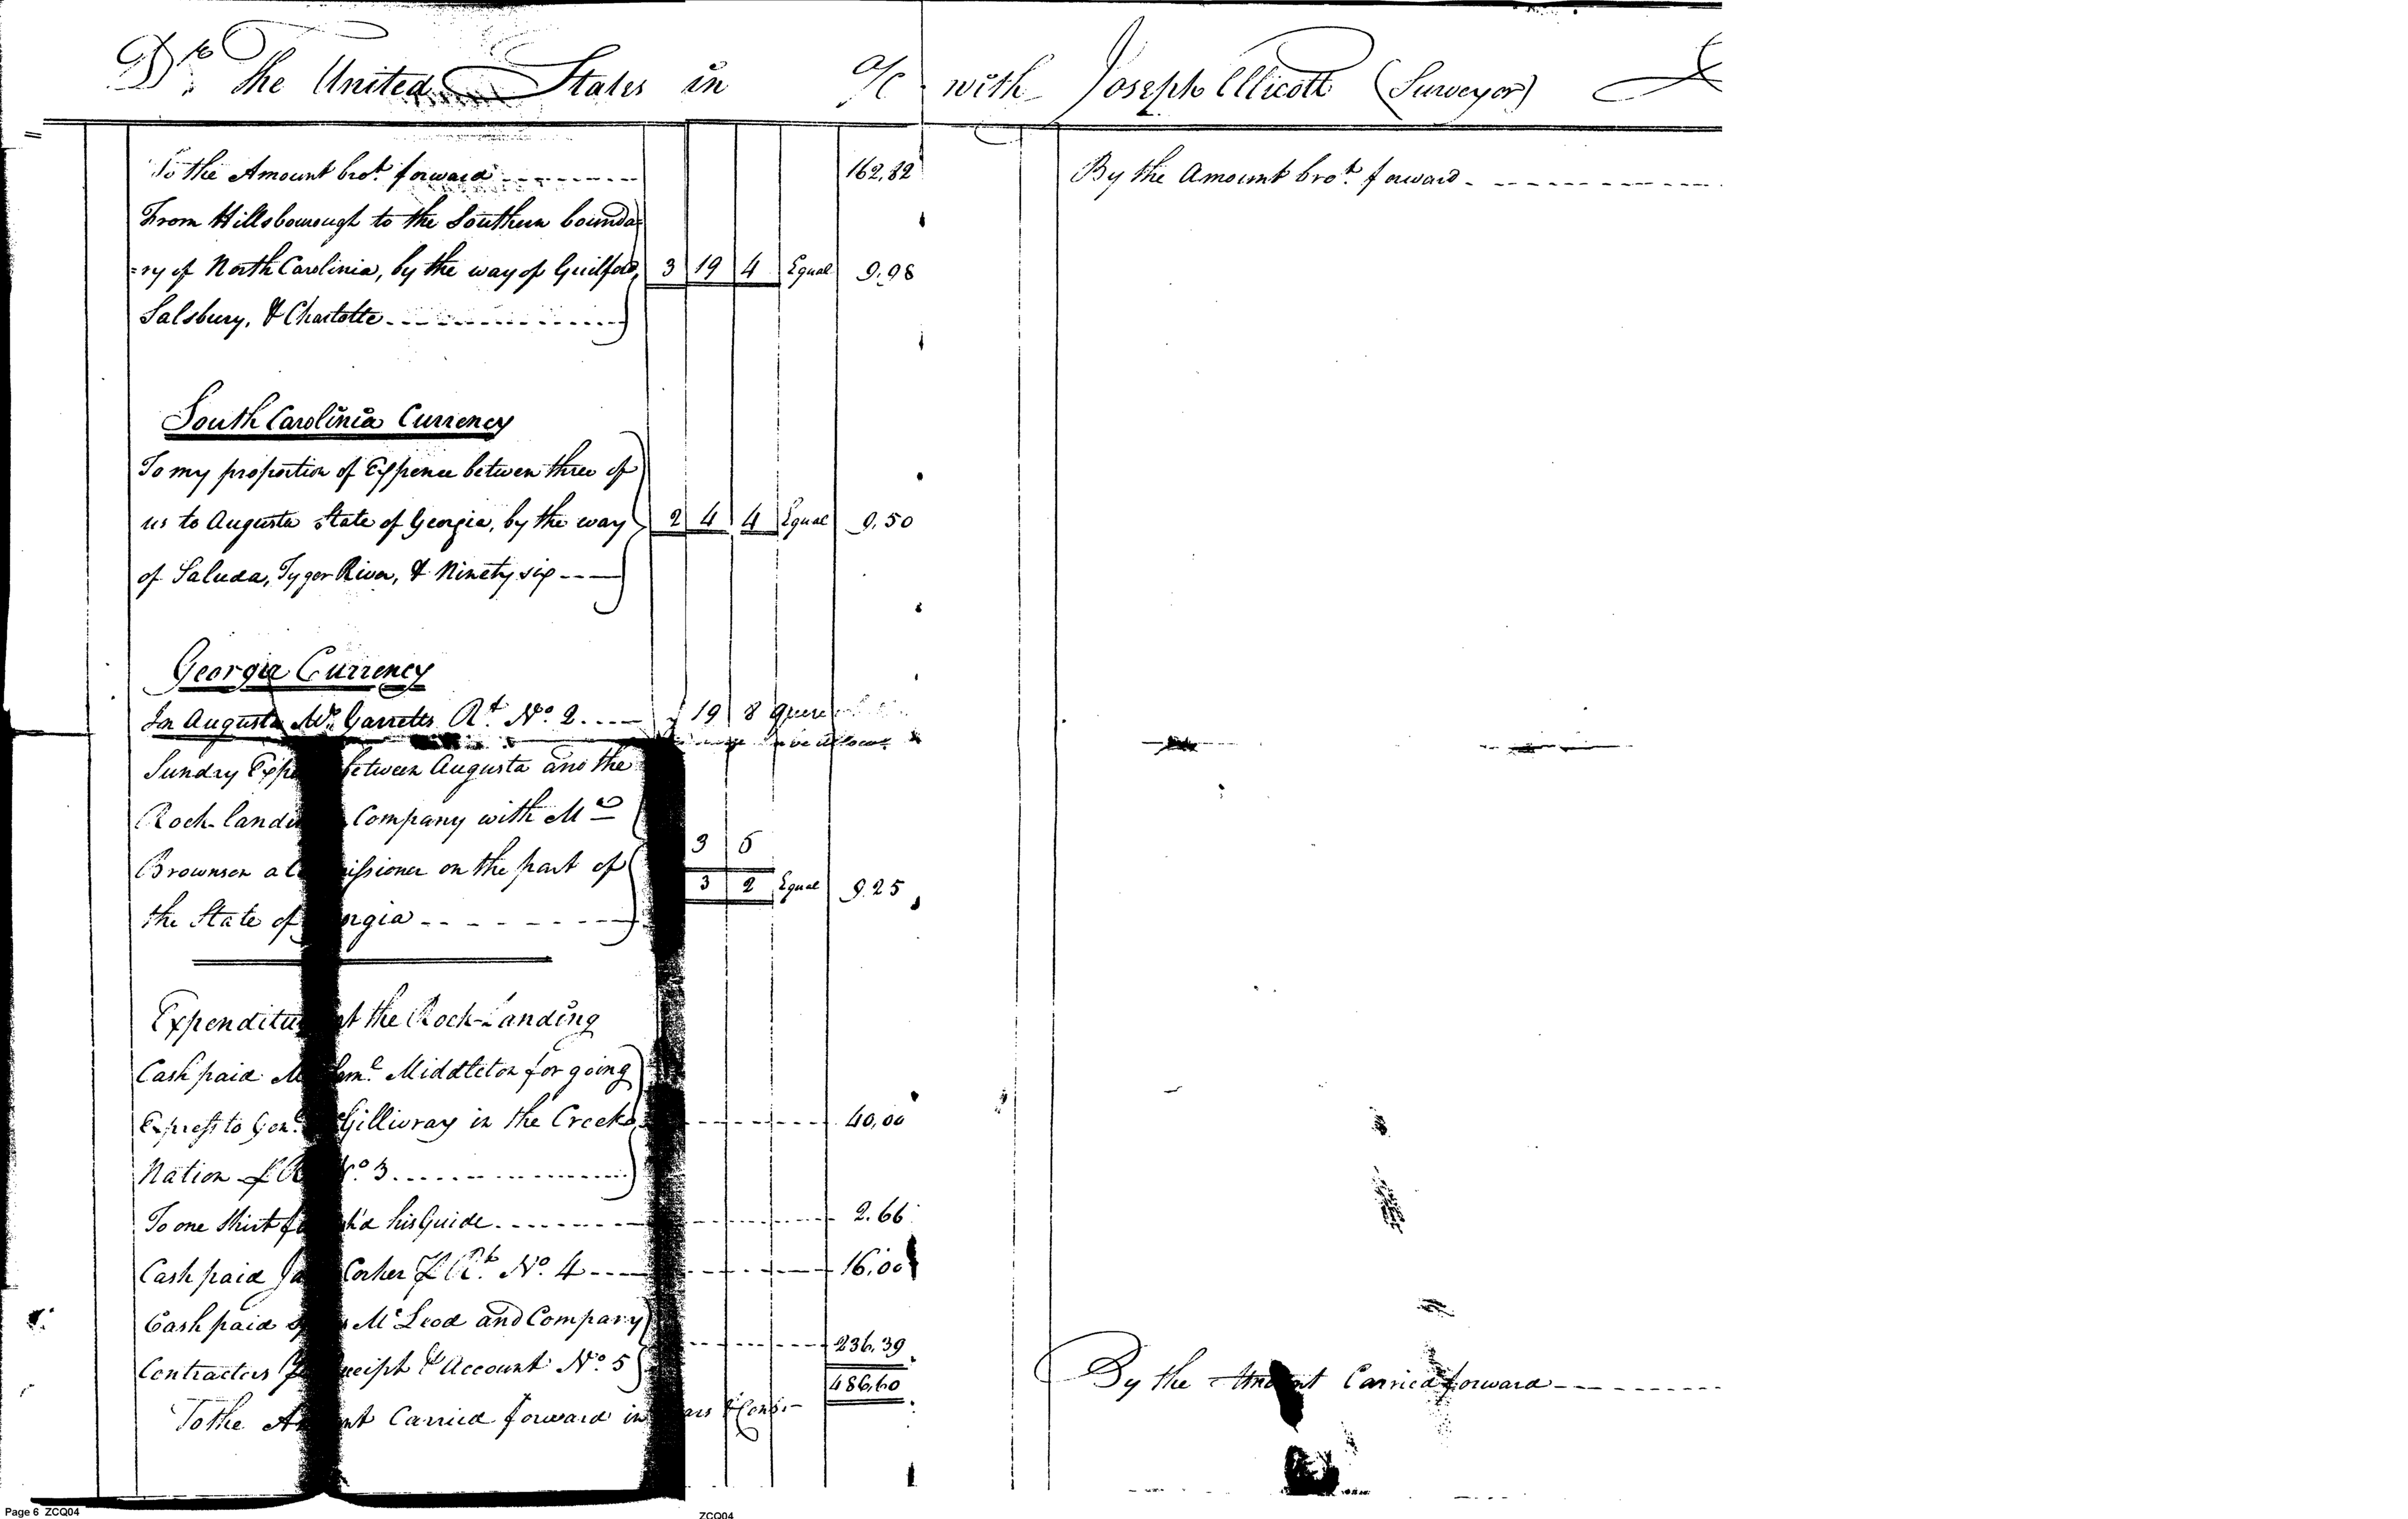 Dr. The United States in a/c with Joseph Ellicott (Surveyor)
To the Amount brot. forward 162,82
From Hillsborough to the Southern bounda=
=ry of North Carolinia, by the way of Guilford, 3 19 4 Equal 9.98
Salsbury, & Charlotte
South Carolinia Currency
To my proportion of Expence betwen three of
us to Augusta State of Georgia, by the way 2 4 4 Equal 9.50
of Saluda, Tyger River, & Ninety six
Georgia Currency
In Augusta Mr. Garretts Rt. No. 2 19 8
Sundry between Augusta and the
Rock-landi Company with Mr
3 6
Brownson a on the part of
3 2 Equal 9.25
the State of
at the Rock-Landing
Cash paid Middleton for going
Express to Genl. Gillivray in the Creek 40,00
Nation No. 3
To one Shirt his Guide 2.66
Cash paid Corker Rt. No. 4 16,00
Cash paid Mc Leod and Company
236,39
Contractors & Account No. 5
486,60
To the Carried forward in & Cents
By the Amount brot. forward
By the Carried forward
Page 6 ZCQ04
ZCQ04